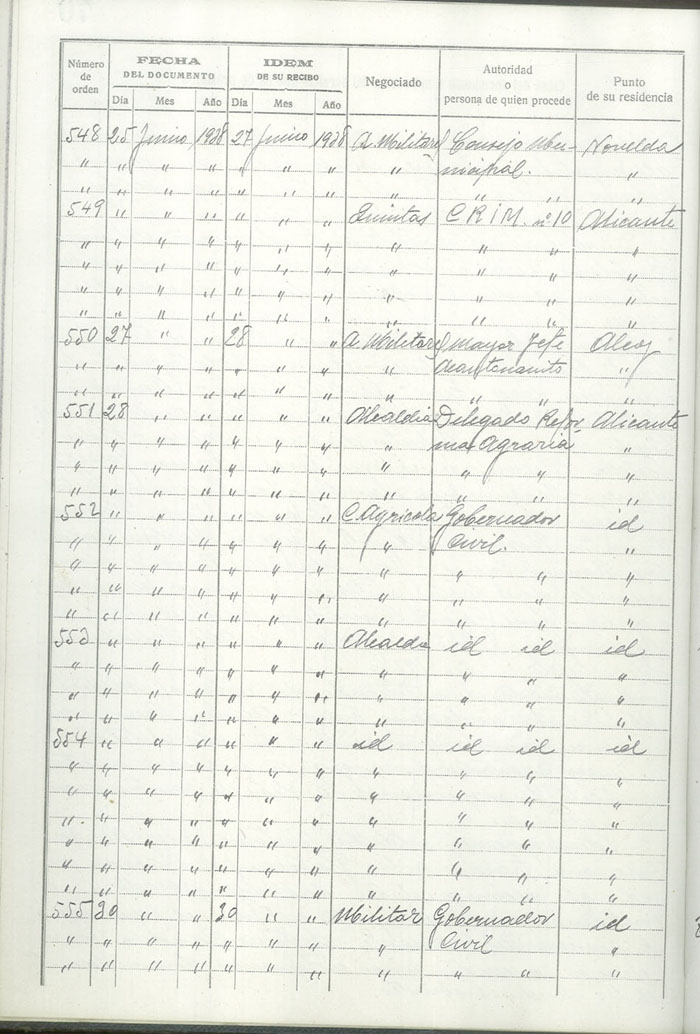 Número de orden | FECHA DEL DOCUMENTO | IDEM DE SU RECIBO | Negociado | Autoridad o persona de quien procede | Punto de su residencia
Día | Mes | Año | Día | Mes | Año
548 25 Junio 1938 27 Junio 1938 A. Militares Consejo Mu- Novelda
" " " " " " " " nicipal. "
" " " " " " " " " " "
549 " " " " " " Quintas C R i M. nº 10 Alicante
" " " " " " " " " " "
" " " " " " " " " " "
" " " " " " " " " " "
" " " " " " " " " " "
550 27 " " 28 " " A. Militares Mayor Jefe Alcoy
" " " " " " " " Acantonamito "
" " " " " " " " " " "
551 28 " " " " " Alcaldia Delegado Refor Alicante
" " " " " " " " ma Agraria "
" " " " " " " " " " "
" " " " " " " " " " "
552 " " " " " " C. Agricola Gobernador id
" " " " " " " " Civil. "
" " " " " " " " " " "
" " " " " " " " " " "
" " " " " " " " " " "
553 " " " " " " Alcaldia id id id
" " " " " " " " " " "
" " " " " " " " " " "
" " " " " " " " " " "
554 " " " " " " id id id id
" " " " " " " " " " "
" " " " " " " " " " "
" " " " " " " " " " "
" " " " " " " " " " "
" " " " " " " " " " "
" " " " " " " " " " "
555 30 " " 30 " " Militar Gobernador id
" " " " " " " " Civil "
" " " " " " " " " " "